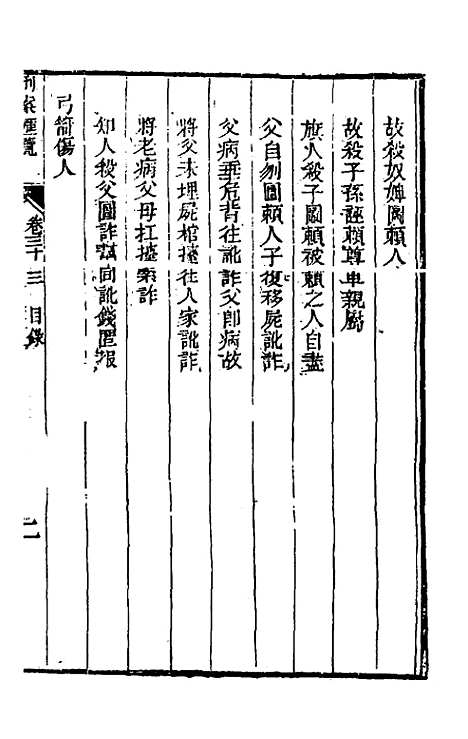 故殺奴婢圖賴人
故殺子孫誣賴尊卑親屬
旗人殺子圖賴被賴之人自盡
父自刎圖賴人子復移屍訛詐
父病垂危背往訛詐父卽病故
將父未埋屍棺擡往人家訛詐
將老病父母扛擡索詐
知人殺父圖詐幫同訛錢匿報
弓箭傷人
刑案匯覽
卷三十三 目錄
二